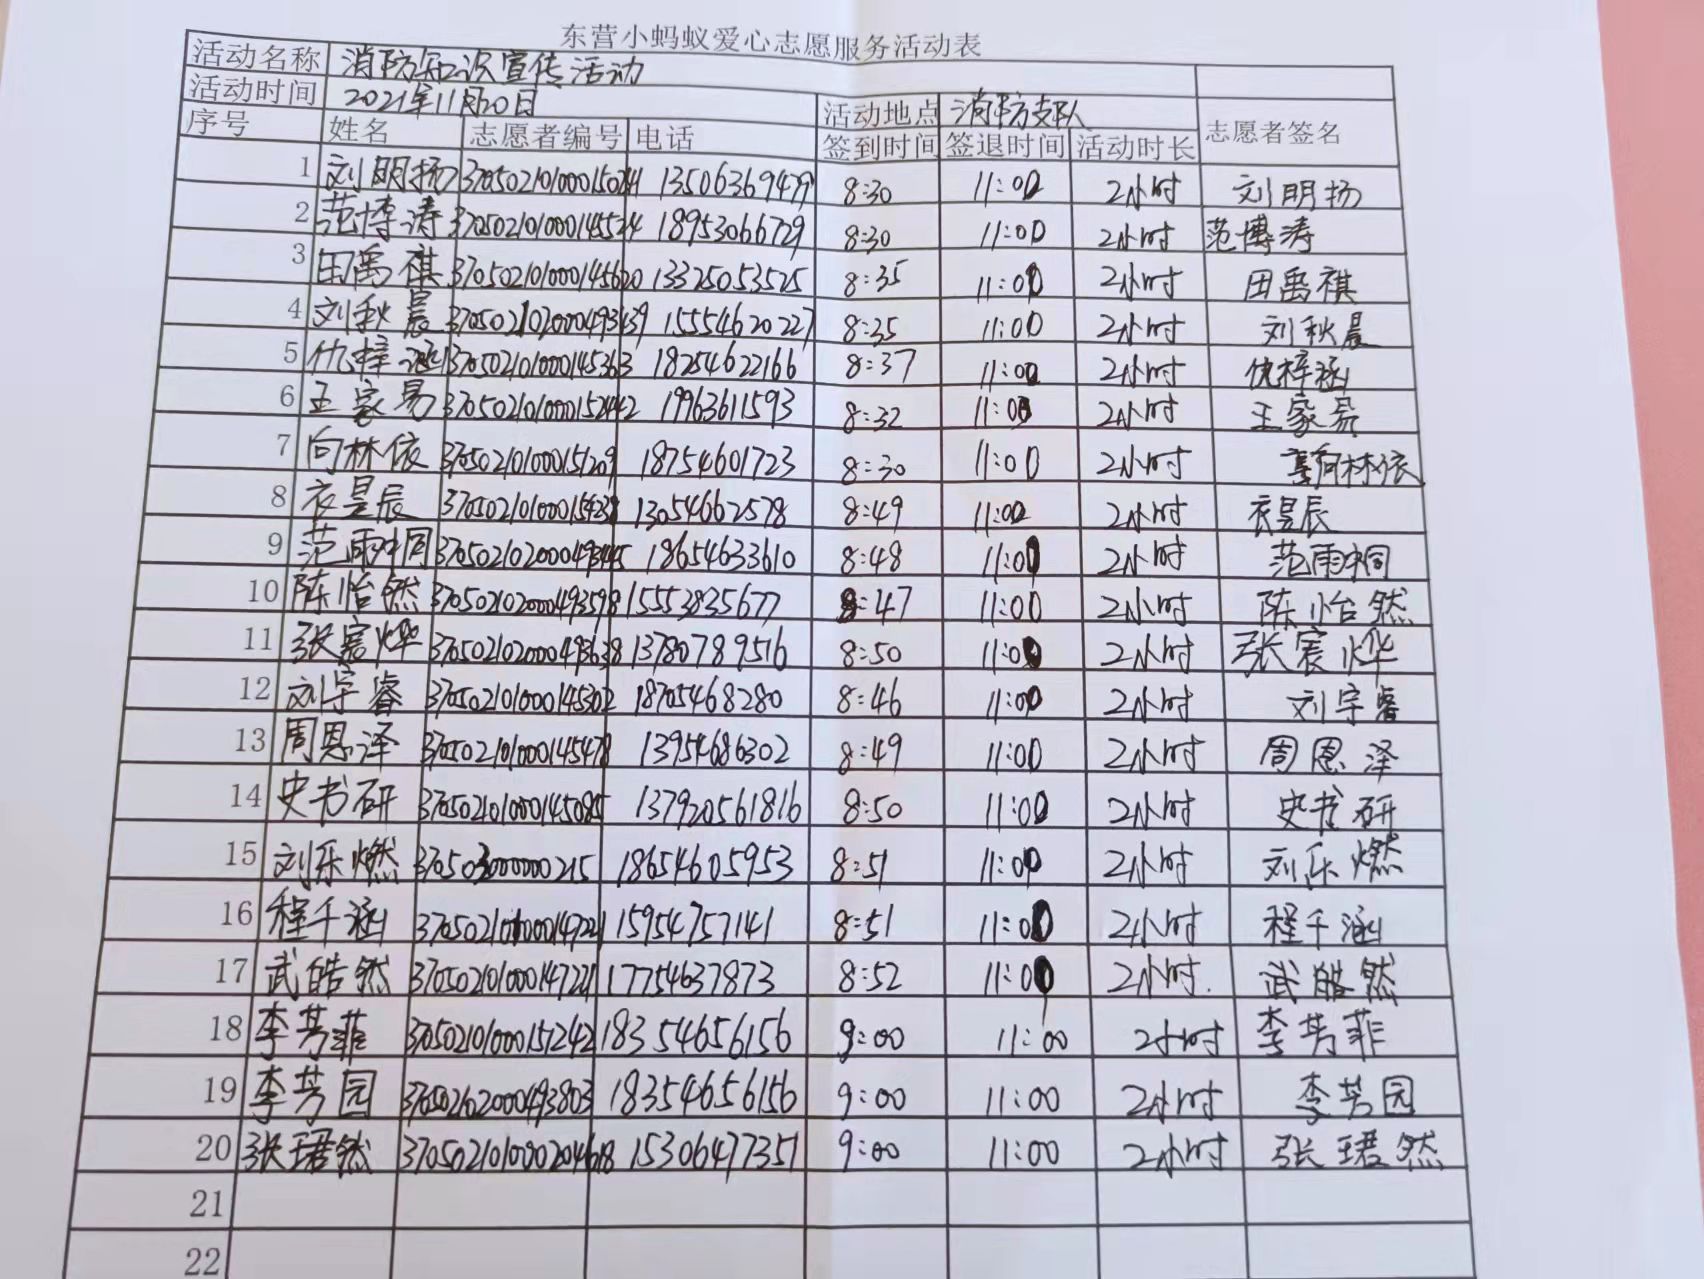 东营小蚂蚁爱心志愿服务活动表
活动名称 消防知识宣传活动
活动时间 2021年11月20日 活动地点 消防支队
序号 姓名 志愿者编号 电话 签到时间 签退时间 活动时长 志愿者签名
1 刘明扬 13506369479 8:30 11:00 2小时 刘明扬
2 范博涛 18953066729 8:30 11:00 2小时 范博涛
3 田禹祺 13325053525 8:35 11:00 2小时 田禹祺
4 刘秋晨 15554620227 8:35 11:00 2小时 刘秋晨
5 仇梓涵 18254622166 8:37 11:00 2小时 仇梓涵
6 王家易 19963611593 8:32 11:00 2小时 王家易
7 向林依 370502101000151209 18754601723 8:30 11:00 2小时 向林依
8 衣昱辰 13054662578 8:49 11:00 2小时 衣昱辰
9 范雨 18654633610 8:48 11:00 2小时 范雨
10 陈怡然 15553835677 8:47 11:00 2小时 陈怡然
11 张宸烨 13780789516 8:50 11:00 2小时 张宸烨
12 刘宇睿 370502101000145302 18705468280 8:46 11:00 2小时 刘宇睿
13 周恩泽 370502101000145478 13954686302 8:49 11:00 2小时 周恩泽
14 史书研 370502101000145085 137920561816 8:50 11:00 2小时 史书研
15 刘乐燃 18654605953 8:51 11:00 2小时 刘乐燃
16 程千涵 15954757141 8:51 11:00 2小时 程千涵
17 武皓然 370502101000147221 17754637873 8:52 11:00 2小时 武皓然
18 李芳菲 370502101000151242 18354656156 9:00 11:00 2小时 李芳菲
19 李芳园 18354656156 9:00 11:00 2小时 李芳园
20 张珺然 15306477351 9:00 11:00 2小时 张珺然
21
22